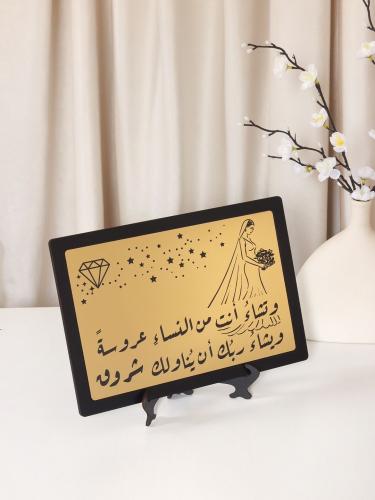 وتشاءُ أنت من النساءِ عروسةً
ويشاءُ ربُك أن يُناولك شروق